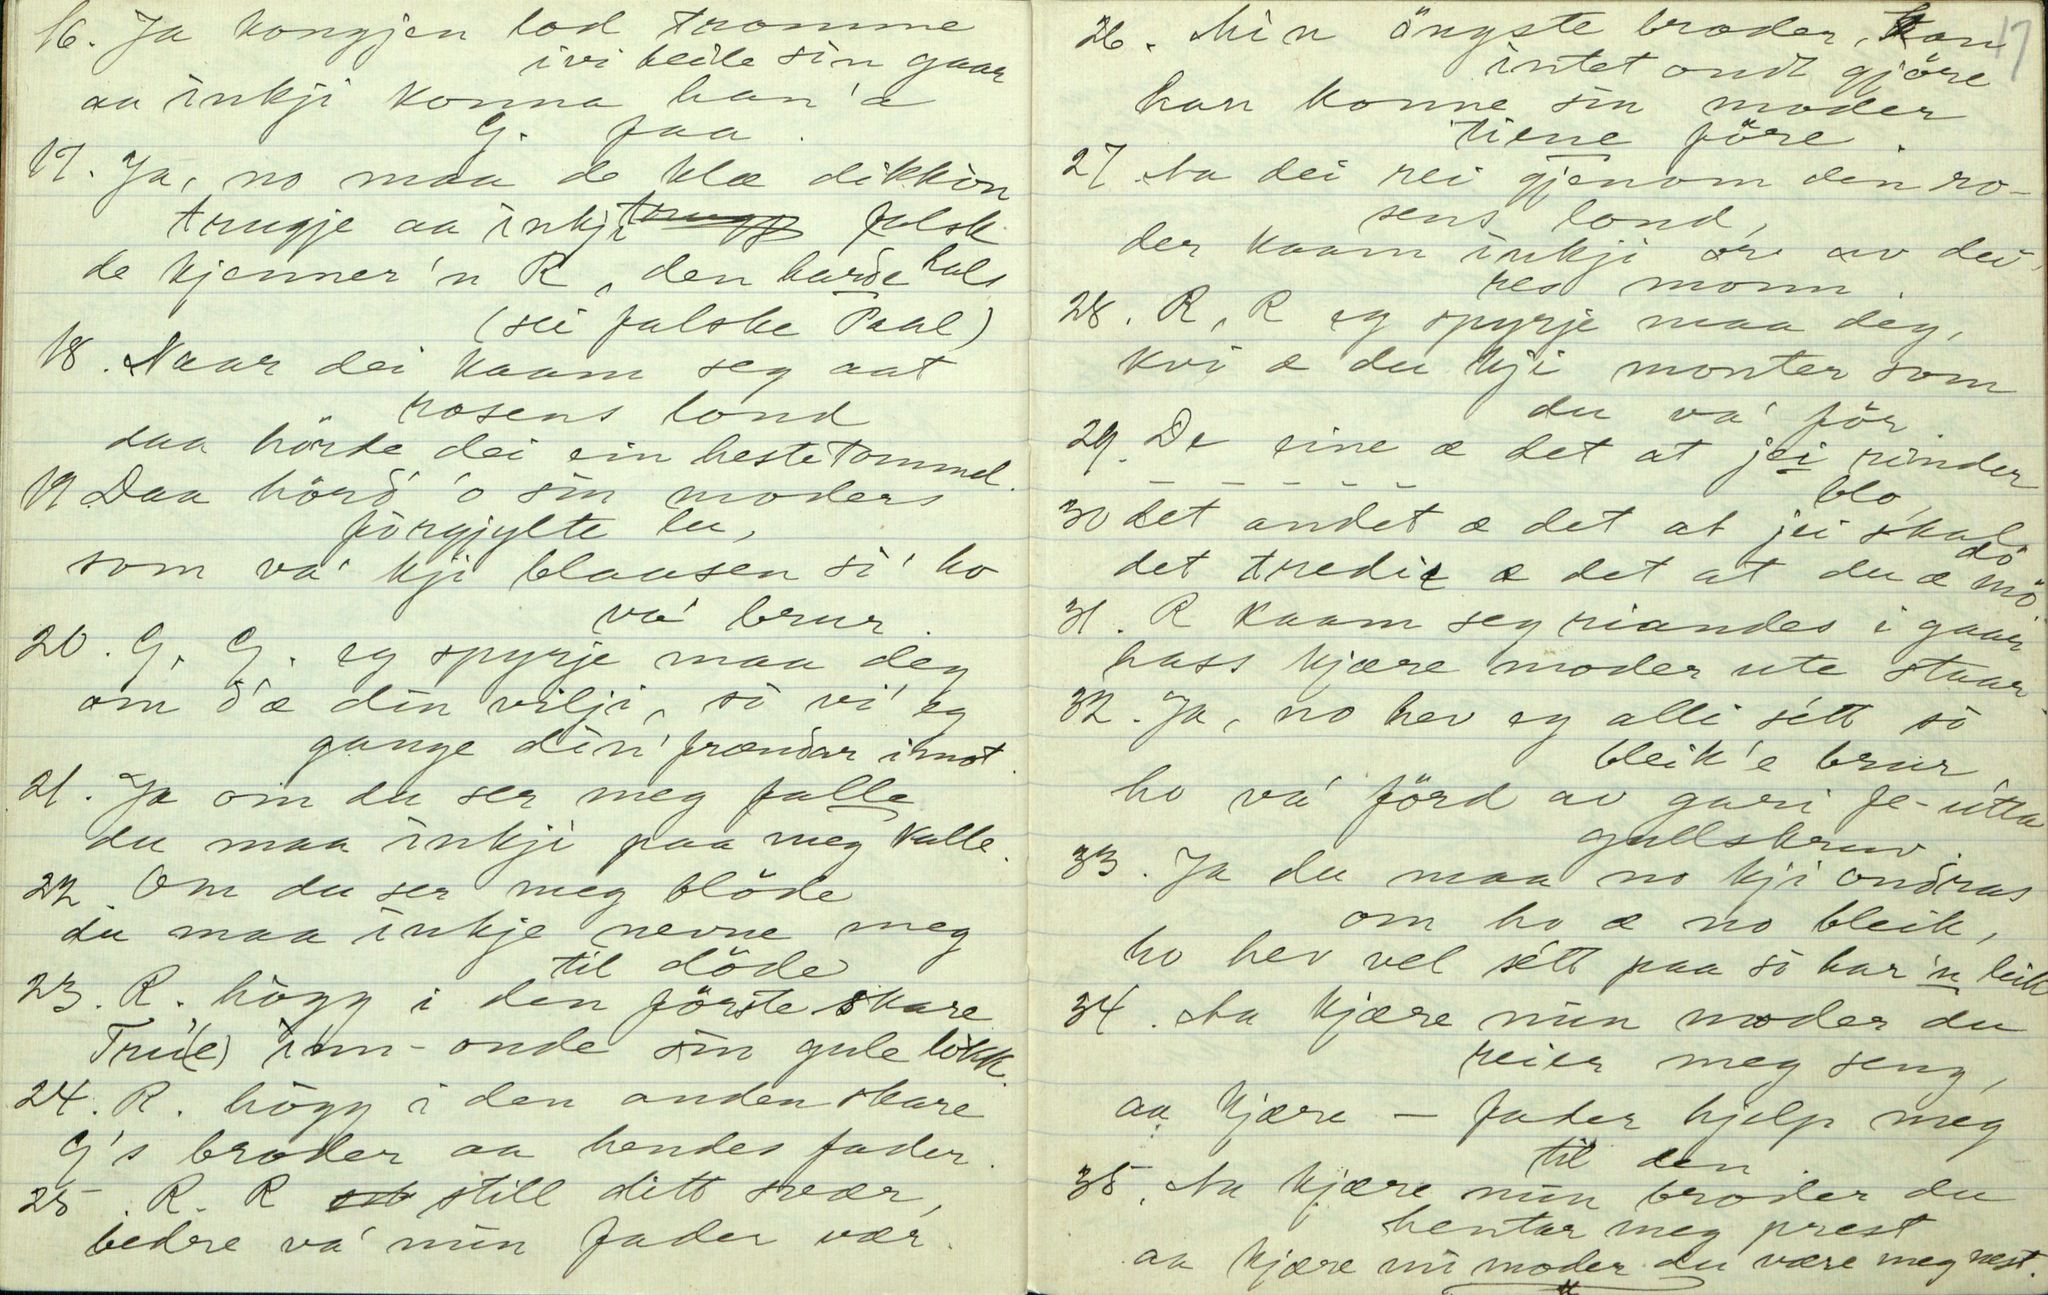 16. Ja kongjen lod tromme
ivi heile sin gaar
aa inkji konna han 'a
G. faa.
17. Ja, no maa de klæ dikkön
trugje aa inkji falsk
de kjenner 'n R, den harde hals
(sei falske Paal)
18. Naar dei kaam seg aat
rosens lond
daa hörde dei ein hestetommel.
19. Daa hörd' 'o sin moders
forgjylte lu,
som va' kji blaasen si' ho
va' brur.
20. G. G. eg spyrje maa deg
om d'æ din vilji, so vi' eg
gange din' frændar imot.
21. Ja om du ser meg falle
du maa inkji paa meg kalle.
22. Om du ser meg blöde
du maa inkje nevne meg
til döde
23. R. högg i den förste skare
Tru'(e) inn-onde sin gule lökk.
24. R. högg i den anden skare
G's broder aa hendes fader.
25. R. R still ditt svær,
bedre va' min fader vær.
17
26. Min öngste broder, kan
intet ondt gjöre
han konne sin moder
tiene före.
27. Aa dei rei gjenom den ro-
sens lond,
der kaam inkji or av dei-
res monn.
28. R, R eg spyrje maa deg,
kvi æ du kji monter som
du va' för.
29. De eine æ det at jei rinder
blo,
— — — — — —
30 det andet æ det at jei skal
dö
det tredie æ det at du æ mö
31. R kaam seg riandes i gaar
hass kjære moder ute staar.
32. Ja, no hev eg alli sétt so
bleik'e brur
ho va' förd av gari fe-utta
gullskruv.
33. Ja du maa no kji ondras
om ho æ no bleik,
ho hev vel sétt paa so har'n leik
34. Aa kjære min moder du
reier meg seng,
aa kjære — fader hjelp meg
til den.
35. Aa kjære min broder du
hentar meg prest
aa kjære mi moder du være meg næst.